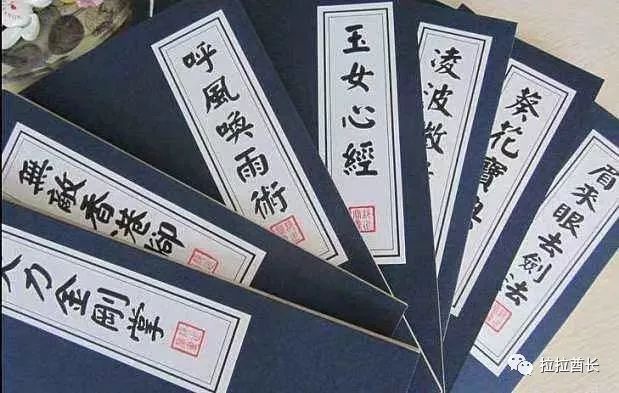 呼風喚雨術
玉女心經
凌波微步
葵花寶典
眉來眼去劍法
無敵香港腳
大力金剛掌
拉拉酋长